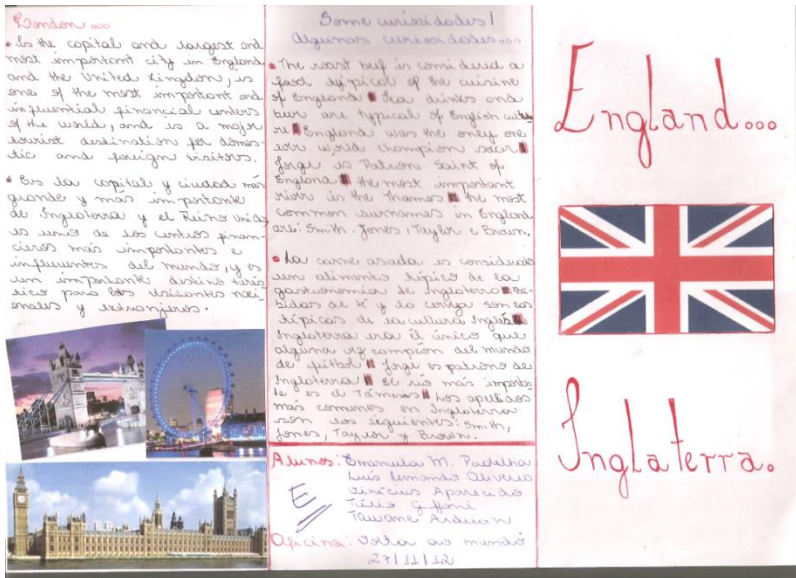 London...
• Is the capital and largest and
most important city in England
and the United Kingdom, is
one of the most important and
influential financial centers
of the world, and is a major
tourist destination for domes-
tic and foreign visitors.
• Es la capital y ciudad más
grande y más importante
de Inglaterra y el Reino Unido,
es unio de los centros finan-
cieros más importantes e
influyentes del mundo, y es
un importante destino turís
tico para los visitantes naci
onales y extranjeros.
Some curiosidades/
Algunas curiosidades...
• The roast buf is considered a
food typical of the cuisine
of England Tea drinks and
beer are typical of English cultu
re England was the only one
ever world champion
Jorge is Patron Saint of
England the most important
river is the Thames the most
common surnames in England
are: Smith, Jones, Taylor e Brown.
• La carne asada es considerado
un alimento típico de la
gastronomia de Inglaterra be-
bidas de té y la cerveja son las
típicas de la cultura Inglés
Inglaterra era el único que
alguna vez campeón del mundo
de fútbol Jorge es patrono de
Inglaterra El río más importan
te es el Támesis Los apellidos
más comunes en Inglaterra
son los siguientes: Smith,
Jones, Taylor y Brown.
Alunos: Emanuela M. Padilha
Luis Fernando Oliveira
Vinicius Aparecido
Tawane
Oficina: Volta ao mundo
27/11/12
E
England...
Inglaterra.